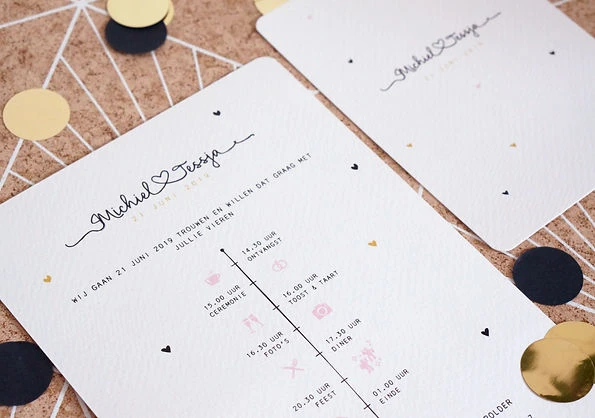 Michiel Tessja
21 JUNI 2019
WIJ GAAN 21 JUNI 2019 TROUWEN EN WILLEN DAT GRAAG MET
JULLIE VIEREN
14.30 UUR
ONTVANGST
15.00 UUR
CEREMONIE
16.00 UUR
TOOST & TAART
16.30 UUR
FOTO'S
17.30 UUR
DINER
20.30 UUR
FEEST
01.00 UUR
EINDE
POLDER
Michiel Tessja
21 JUNI 2019